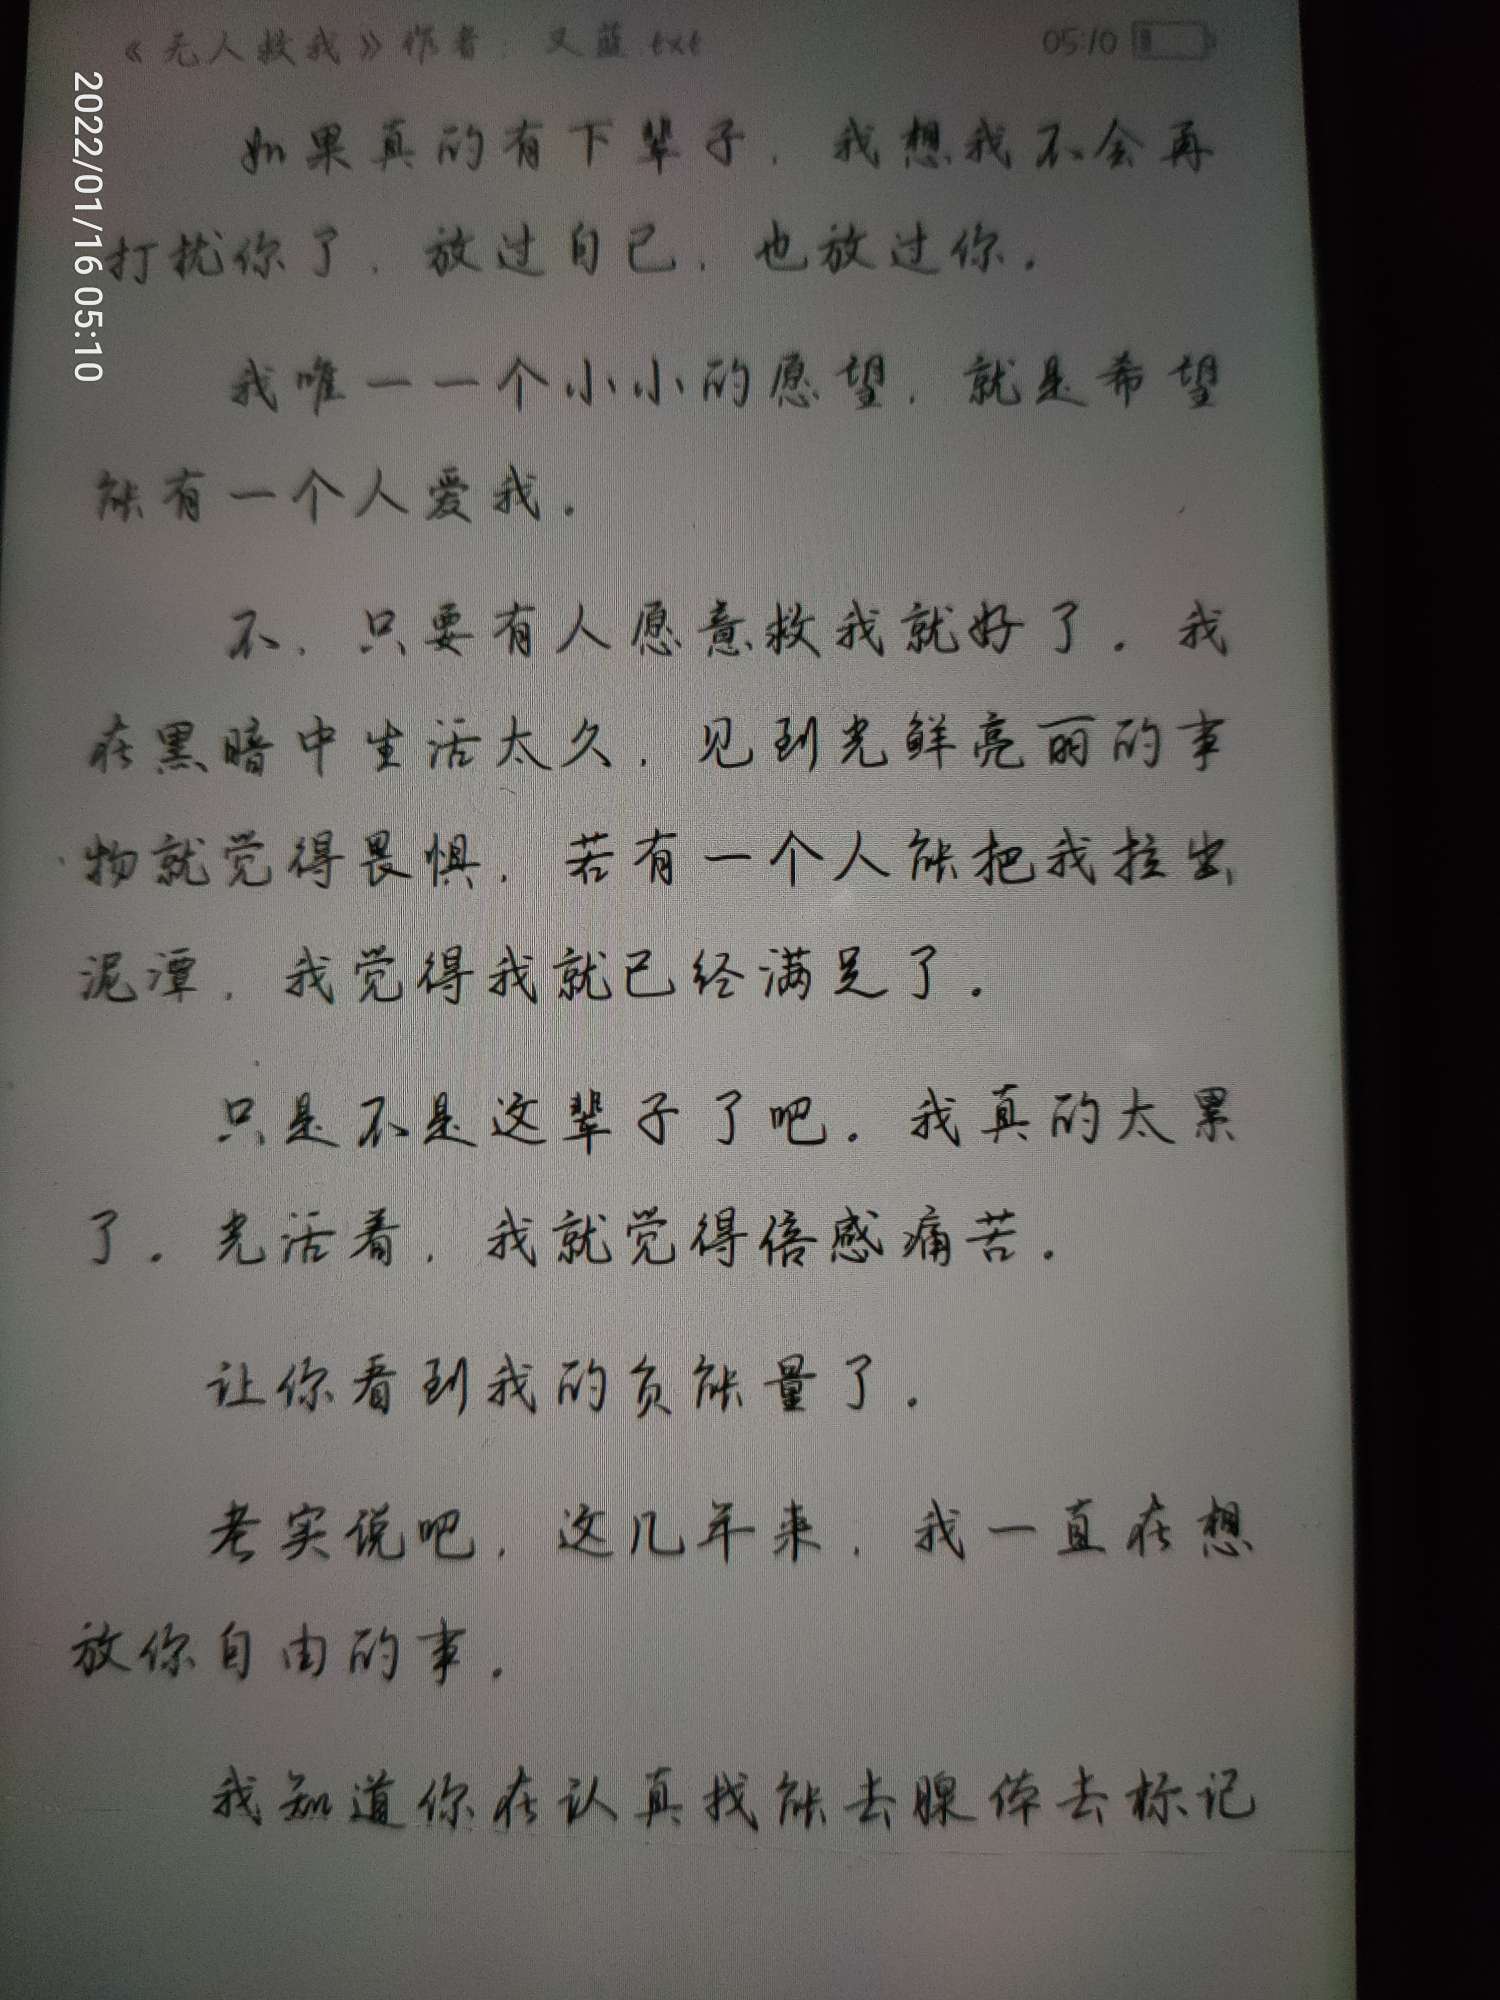 《无人救我》作者：又蓝.txt 05:10
2022/01/16 05:10
如果真的有下辈子，我想我不会再
打扰你了，放过自己，也放过你。
我唯一一个小小的愿望，就是希望
能有一个人爱我。
不，只要有人愿意救我就好了。我
在黑暗中生活太久，见到光鲜亮丽的事
物就觉得畏惧，若有一个人能把我拉出
泥潭，我觉得我就已经满足了。
只是不是这辈子了吧。我真的太累
了。光活着，我就觉得倍感痛苦。
让你看到我的负能量了。
老实说吧，这几年来，我一直在想
放你自由的事。
我知道你在认真找能去腺体去标记